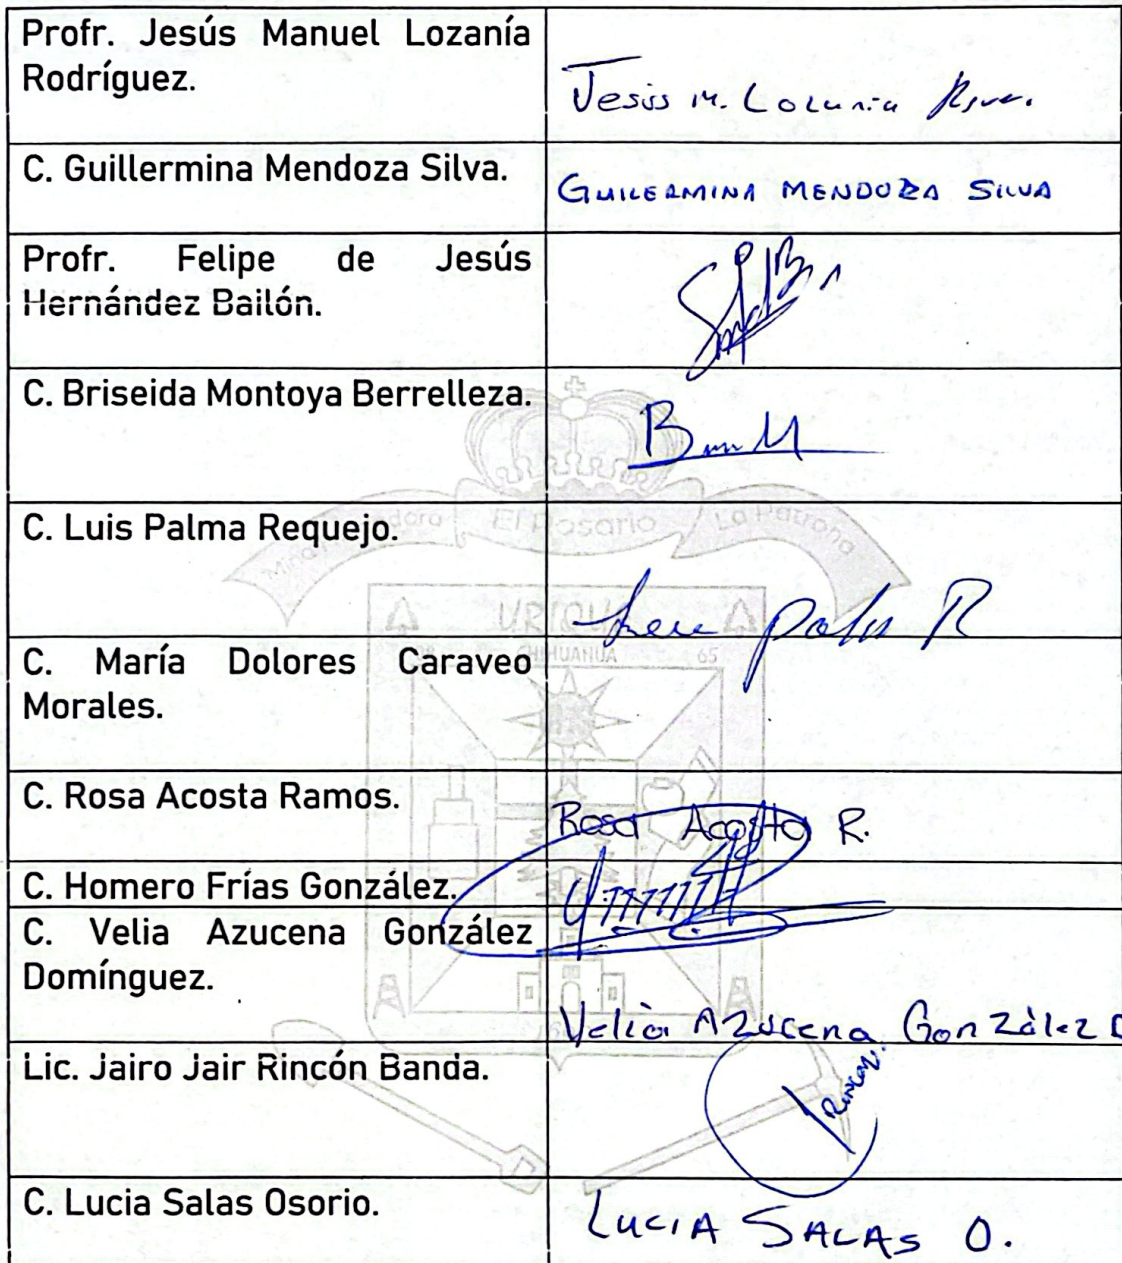 Profr. Jesús Manuel Lozanía
Rodríguez.
Jesús M. Lozania
C. Guillermina Mendoza Silva.
GUILERMINA MENDOZA SILVA
Profr. Felipe de Jesús
Hernández Bailón.
C. Briseida Montoya Berrelleza.
C. Luis Palma Requejo.
El Rosario La Patrona
URIQUE
CHIHUAHUA 65
C. María Dolores Caraveo
Morales.
C. Rosa Acosta Ramos.
Rosa Acosta R.
C. Homero Frías González.
C. Velia Azucena González
Domínguez.
Velia Azucena González D
Lic. Jairo Jair Rincón Banda.
Rincon
C. Lucia Salas Osorio.
LUCIA SALAS O.